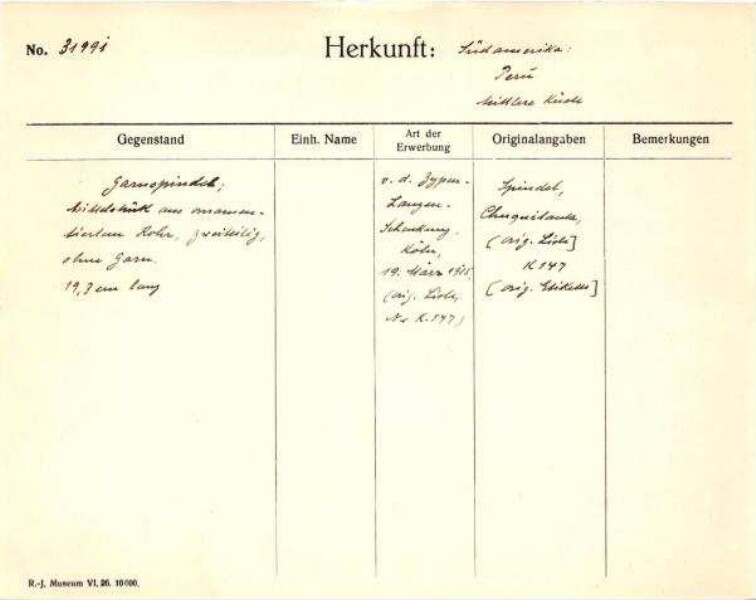 No. 31991
Herkunft: Südamerika:
Perú
Mittlere Küste
Gegenstand
Einh. Name
Art der
Erwerbung
Originalangaben
Bemerkungen
Garnspindel;
Mittelstück aus ornamen-
tiertem Rohr, zweiteilig,
ohne Garn.
19,7 cm lang
v. d. Zypen-
Langen-
Schenkung,
Köln,
19. März 1905
(orig. Liste,
No K.147)
Spindel,
Chuquitanta,
(orig. Liste]
K 147
[orig. Etikette]
R.-J. Museum VI. 26. 10000.